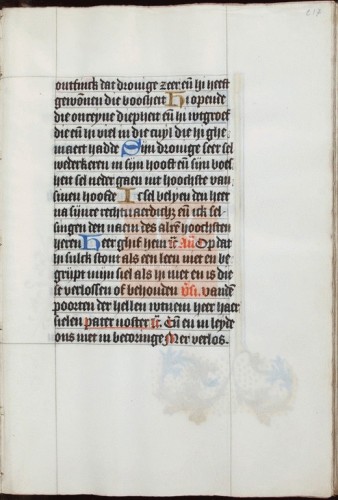 217
outfinck dat drouige zeer eñ hi heeft
gewōnen die boosheit Hi opende
die onreyne diepheit eñ hi wtgroef
die eñ hi viel in die cuyl die hi ghe
maect hadde Sijn drouige seer sel
wederkeren in sijn hooft eñ sijn boes
heit sel neder gaen int hoochste van
sinen hoofde Ic sel belyen den heer
na sijnre rechtuaerdichz eñ ick sel
singen den naem des alrē hoochsten
heren Heer ghif hem Op dat
in sulck stont als een leeu niet en be
gript mijn siel als hi niet en is die
se verlossen of behouden vandē
poorten der hellen wtnem heer haer
sielen pater noster Eñ en in leyde
ons niet in becoringe Mer verlos.